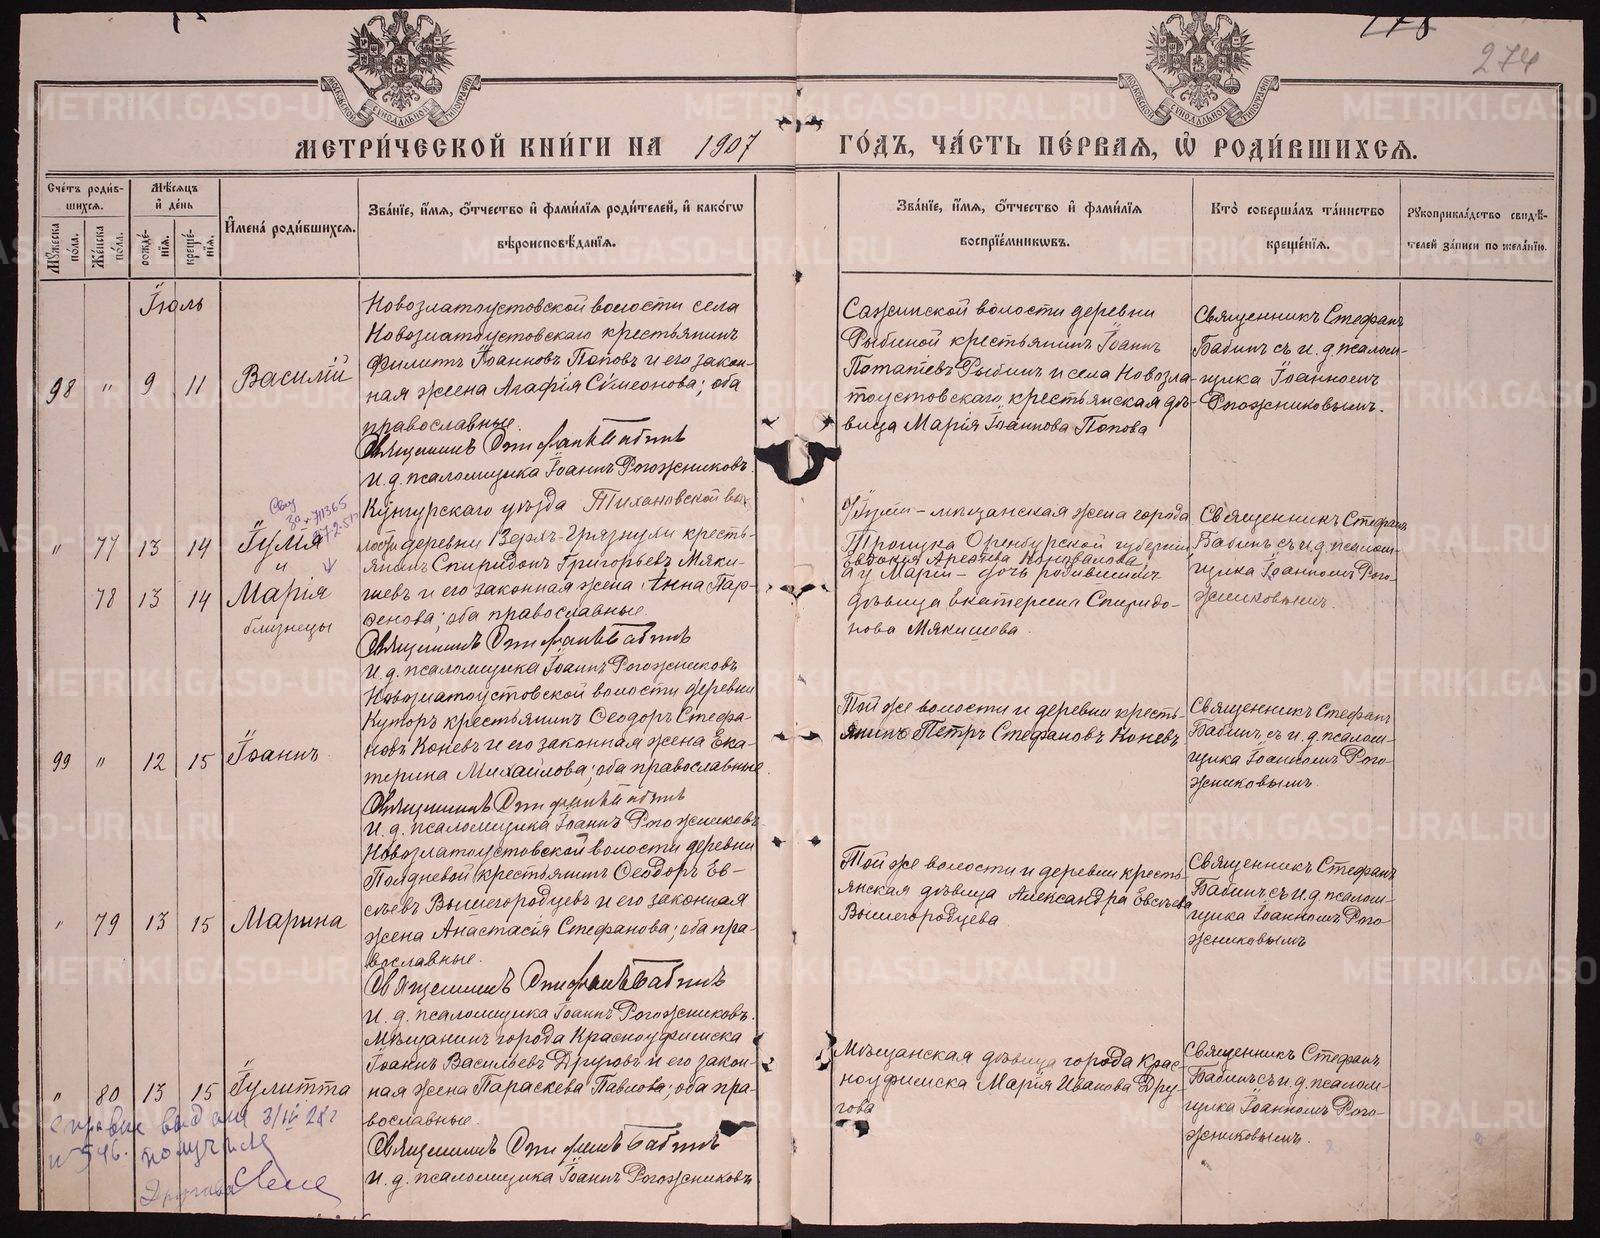 274
МЕТРИ́ЧЕСКОЙ КНИ́ГИ НА 1907 ГО́ДЪ, ЧА́СТЬ ПЕ́РВАЯ, Ѡ РОДИ́ВШИХСЯ.
Сче́тъ роди́вшихся.
Мѣ́сяцъ и де́нь
Имена́ роди́вшихся.
Зва́нїе, и́мя, о́тчество и фами́лїя роди́телей, и како́гѡ вѣроисповѣ́данїя.
Мꙋ́жеска по́ла.
Же́нска по́ла.
рожде́нїя.
креще́нїя.
Зва́нїе, и́мя, о́тчество и фами́лїя воспрїе́мникѡвъ.
Кто̀ соверша́лъ та́инство креще́нїя.
Рꙋкоприкла́дство свидѣ́телей за́писи по жела́нїю.
Іюль
98 " 9 11 Василій
Новозлатоустовской волости села
Новозлатоустовскаго крестьянинъ
Филиппъ Іоанновъ Поповъ и его закон-
ная жена Агафія Сѵмеонова; оба
православные.
Священникъ Стефанъ Бабинъ
И. д. псаломщика Іоаннъ Рогожниковъ
Сажинской волости деревни
Рыбиной крестьянинъ Іоаннъ
Потапіевъ Рыбинъ и села Новозла-
тоустовскаго крестьянская дѣ-
вица Марія Іоаннова Попова
Священникъ Стефанъ
Бабинъ съ и. д. псалом-
щика Іоанномъ
Рогожниковымъ.
" 77 13 14 Іулія
и
78 13 14 Марія
близнецы
Кунгурскаго уѣзда Тихановской во-
лости деревни Верхъ-Грязнухи кресть-
янинъ Спиридонъ Григорьевъ Мяки-
шевъ и его законная жена Анна Пар-
ѳенова; оба православные.
Священникъ Стефанъ Бабинъ
И. д. псаломщика Іоаннъ Рогожниковъ
У Іуліи – мѣщанская жена города
Троицка Оренбургской губерніи
Евдокія
а у Маріи – дочь родившихъ
дѣвица Екатерина Спиридо-
нова Мякишева.
Священникъ Стефанъ
Бабинъ съ и. д. псалом-
щика Іоанномъ Рого-
жниковымъ.
99 " 12 15 Іоаннъ
Новозлатоустовской волости деревни
Куторъ крестьянинъ Ѳеодоръ Стефа-
новъ Коневъ и его законная жена Ека-
терина Михайлова; оба православные
Священникъ Стефанъ Бабинъ
И. д. псаломщика Іоаннъ Рогожниковъ.
Той же волости и деревни кресть-
янинъ Петръ Стефановъ Коневъ
Священникъ Стефанъ
Бабинъ съ и. д. псалом-
щика Іоанномъ Рого-
жниковымъ.
" 79 13 15 Марина
Новозлатоустовской волости деревни
Полдневой крестьянинъ Ѳеодоръ Ев-
сѣевъ Вышегородцевъ и его законная
жена Анастасія Стефанова; оба пра-
вославные.
Священникъ Стефанъ Бабинъ
И. д. псаломщика Іоаннъ Рогожниковъ.
Той же волости и деревни кресть-
янская дѣвица Александра Евсѣева
Вышегородцева
Священникъ Стефанъ
Бабинъ съ и. д. псалом-
щика Іоанномъ Рого-
жниковымъ
" 80 13 15 Іулитта
Мѣщанинъ города Красноуфимска
Іоаннъ Васильевъ Друговъ и его закон-
ная жена Параскева Павлова; оба пра-
вославные.
Священникъ Стефанъ Бабинъ
И. д. псаломщика Іоаннъ Рогожниковъ
Мѣщанская дѣвица города Крас-
ноуфимска Марія Иванова Дру-
гова
Священникъ Стефанъ
Бабинъ съ и. д. псалом-
щика Іоанномъ Рого-
жниковымъ.
№ 546. получила
METRIKI.GASO-URAL.RU